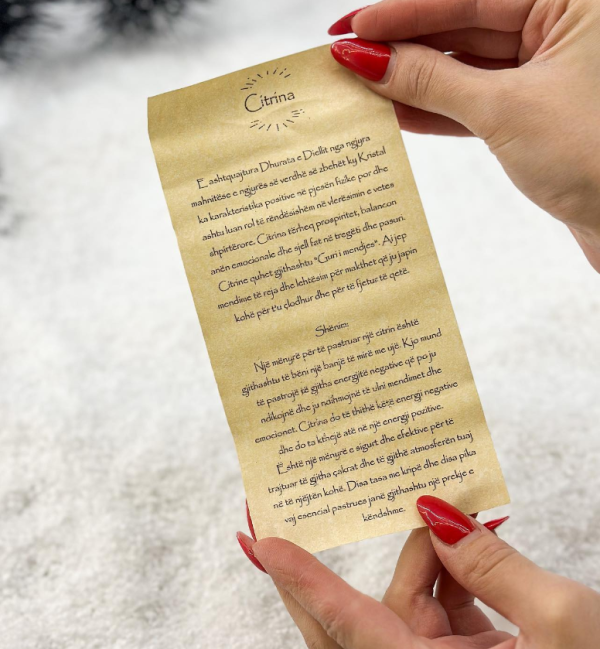 Citrina
E ashtquajtura Dhurata e Diellit nga ngjyra
mahnitëse e ngjyrës së verdhë së zbehët ky Kristal
ka karakteristika positive në pjesën fizike por dhe
ashtu luan rol të rëndësishëm në vlerësimin e vetes
shpirtërore. Citrina tërheq prospiritet, balancon
anën emocionale dhe sjell fat në tregëti dhe pasuri.
Citrine quhet gjithashtu "Guri i mendjes". Aj jep
mendime të reja dhe lehtësim për makthet që ju japin
kohë për t'u çlodhur dhe për të fjetur të qetë.
Shënie:
Një mënyrë për të pastruar një citrin është
gjithashtu të bëni një banjë të mirë me ujë. Kjo mund
të pastrojë të gjitha energjitë negative që po ju
ndikojnë dhe ju ndihmojnë të ulni mendimet dhe
emocionet. Citrina do të thithë këtë energji negative
dhe do ta kthejë atë në një energji pozitive.
Është një mënyrë e sigurt dhe efektive për të
trajtuar të gjitha çakrat dhe të gjithë atmosferën tuaj
në të njëjtën kohë. Disa tasa me kripë dhe disa pika
vaj esencial pastrues janë gjithashtu një prekje e
këndshme.